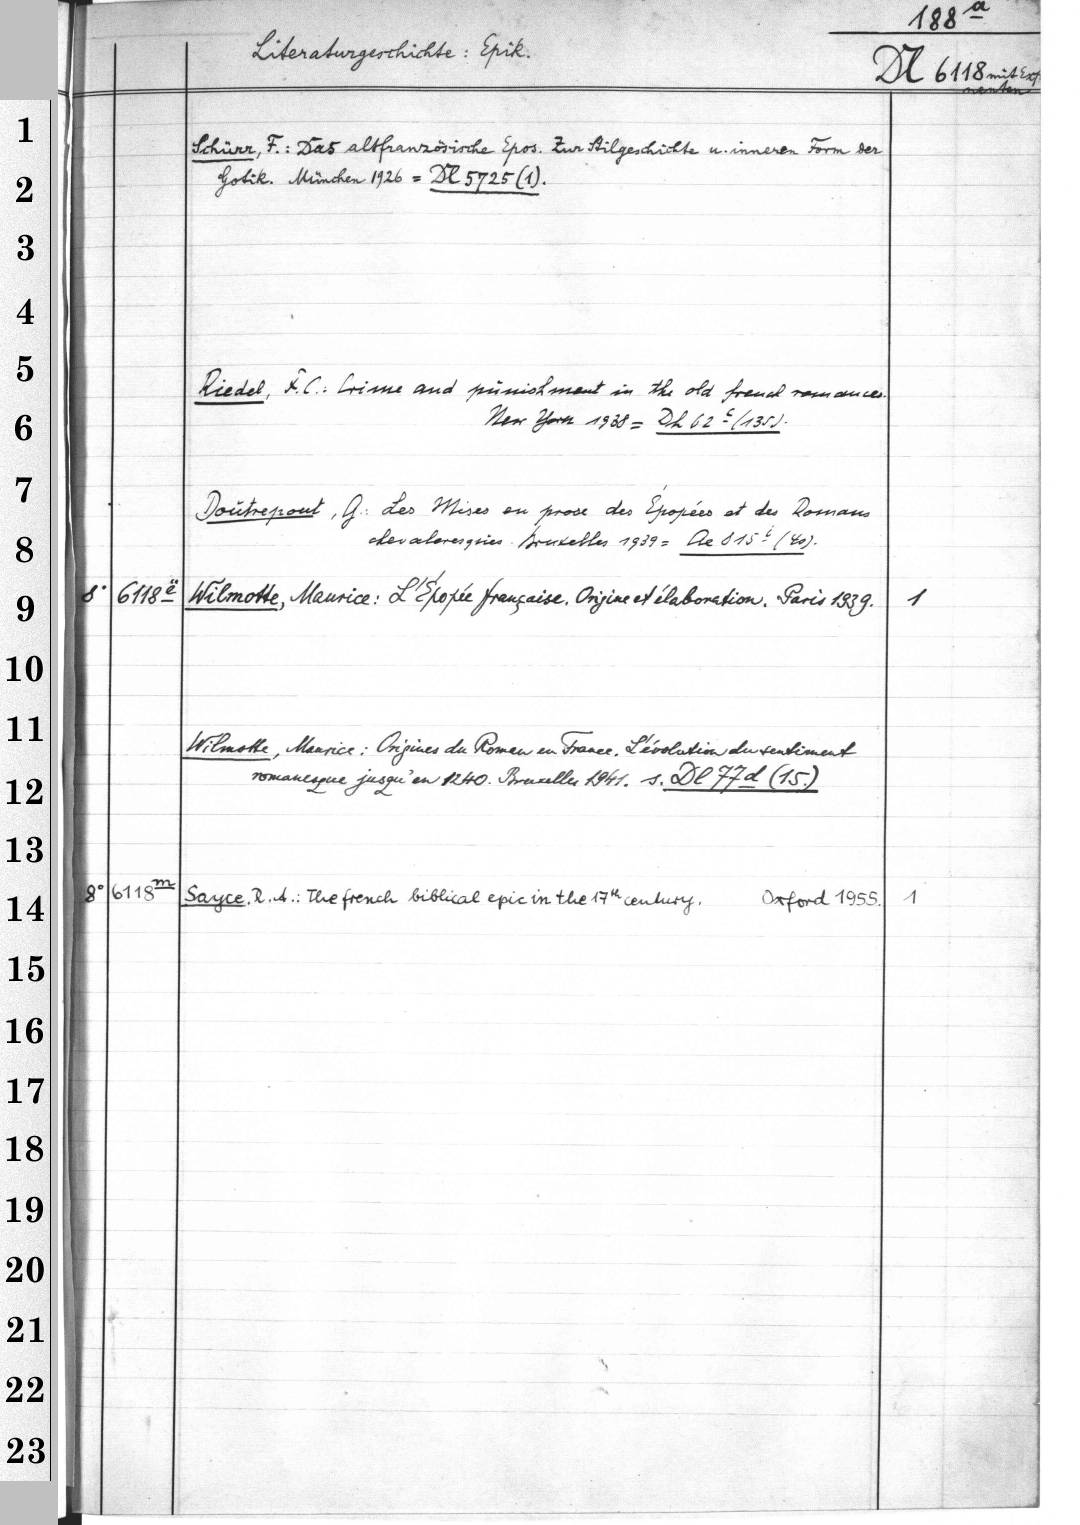 188 a
Literaturgeschichte: Epik.
Dl 6118 mit Expo
nenten
1
Schürr, F.: Das altfranzösische Epos. Zur Stilgeschichte u. inneren Form der
2
Gotik. München 1926 = Dl 5725 (1).
3
4
5
Riedel, F. C.: Crime and punishment in the old french romances.
6
New York 1938 = Dh 62 c (135).
7
Doutrepont, G.: Les Mises en prose des Épopées et des Romans
8
chevaleresques. Bruxelles 1939 = Ae 815 (40).
9
8° 6118 ë Wilmotte, Maurice: L'Épopée française. Origine et élaboration. Paris 1939. 1
10
11
Wilmotte, Maurice: Origines du Roman en France. L'évolution du sentiment
12
romanesque jusqu'en 1240. Bruxelles 1941. s. Dl 77 d (15.)
13
14
8° 6118 m Sayce, R. A.: The french biblical epic in the 17th century. Oxford 1955. 1
15
16
17
18
19
20
21
22
23